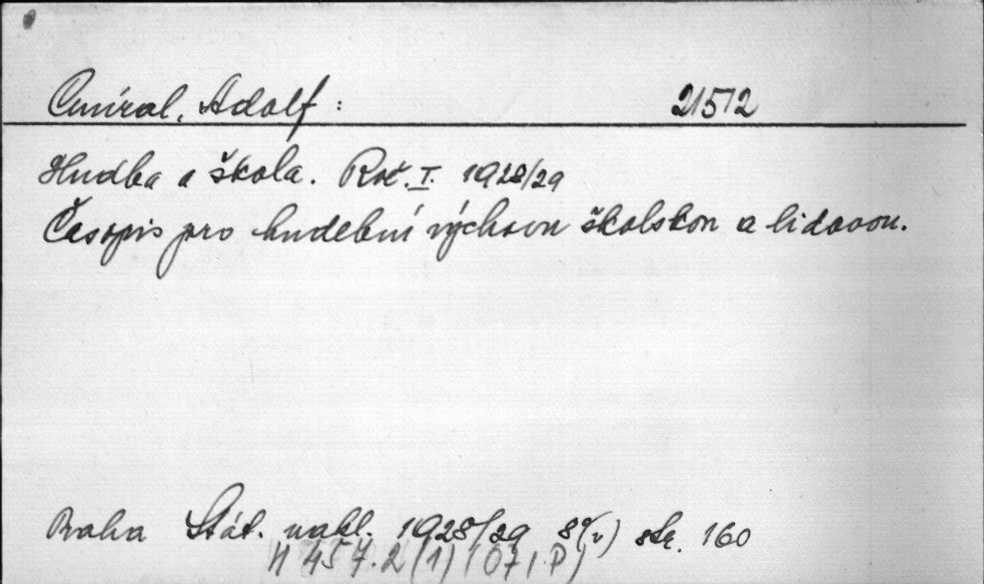 Cmíral, Adolf: 21512
Hudba a škola. Roč. I. 1928/29
Časopis pro hudební výchovu školskou a lidovou.
Praha Stát. nakl. 1928/29 8°(v) str. 160
H 457.2 (1) (071.P)